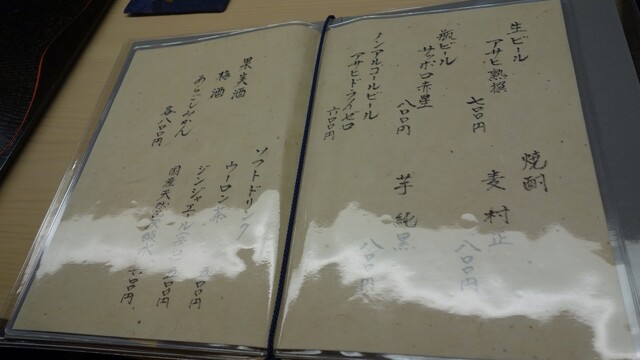 生ビール
アサヒ熟撰
七〇〇円
瓶ビール
サッポロ赤星
八〇〇円
ノンアルコールビール
アサヒドライゼロ
六〇〇円
焼酎
麦 村正
八〇〇円
芋 純黒
八〇〇円
果実酒
梅酒
あらごしみかん
各八〇〇円
ソフトドリンク
ウーロン茶
ジンジャエール
〇〇円
国産天然
〇〇円
〇〇円